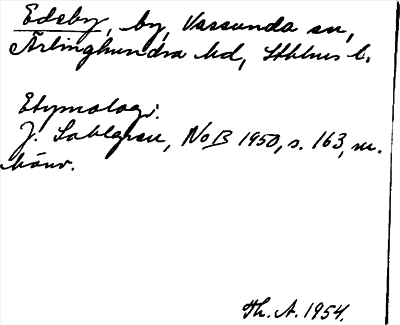 Edeby, by, Vassunda sn,
Ärlinghundra hd, Sthlms l.
Etymologi:
J. Sahlgren, NoB 1950, s. 163, m.
hänv.
Th. A. 1954.